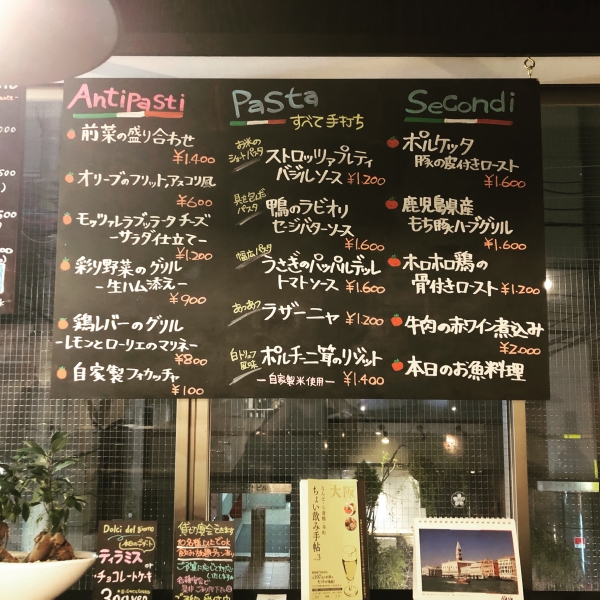 Antipasti
前菜の盛り合わせ
¥1.400
オリーブのフリット,アスコリ風
¥600
モッツァレラブッラータチーズ
-サラダ仕立て-
¥1.200
彩り野菜のグリル
-生ハム添え-
¥900
鶏レバーのグリル
-レモンとローリエのマリネ-
¥800
自家製フォカッチャ
¥100
Pasta
すべて手打ち
お米の
ショートパスタ
ストロッツァプレティ
バジルソース ¥1.200
具を包んだ
パスタ
鴨のラビオリ
セージバターソース
¥1.600
幅広パスタ
うさぎのパッパルデッレ
トマトソース ¥1.600
あつあつ
ラザーニャ ¥1.200
白トリュフ
風味
ポルチーニ茸のリゾット
-自家製米使用- ¥1.400
Secondi
ポルケッタ
豚の皮付きロースト
¥1.600
鹿児島県産
もち豚ハーブグリル
¥1.600
ホロホロ鶏の
骨付きロースト ¥1.200
牛肉の赤ワイン煮込み
¥2.000
本日のお魚料理
Dolci del giorno
ティラミス or
チョコレートケーキ
貸し切り宴会できます
飲み放題
大阪
ちょい飲み手帖